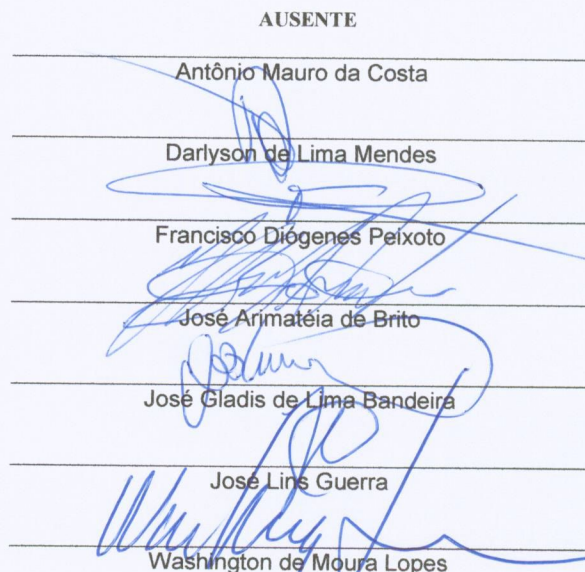 AUSENTE
Antônio Mauro da Costa
Darlyson de Lima Mendes
Francisco Diógenes Peixoto
José Arimatéia de Brito
José Gladis de Lima Bandeira
José Lins Guerra
Washington de Moura Lopes